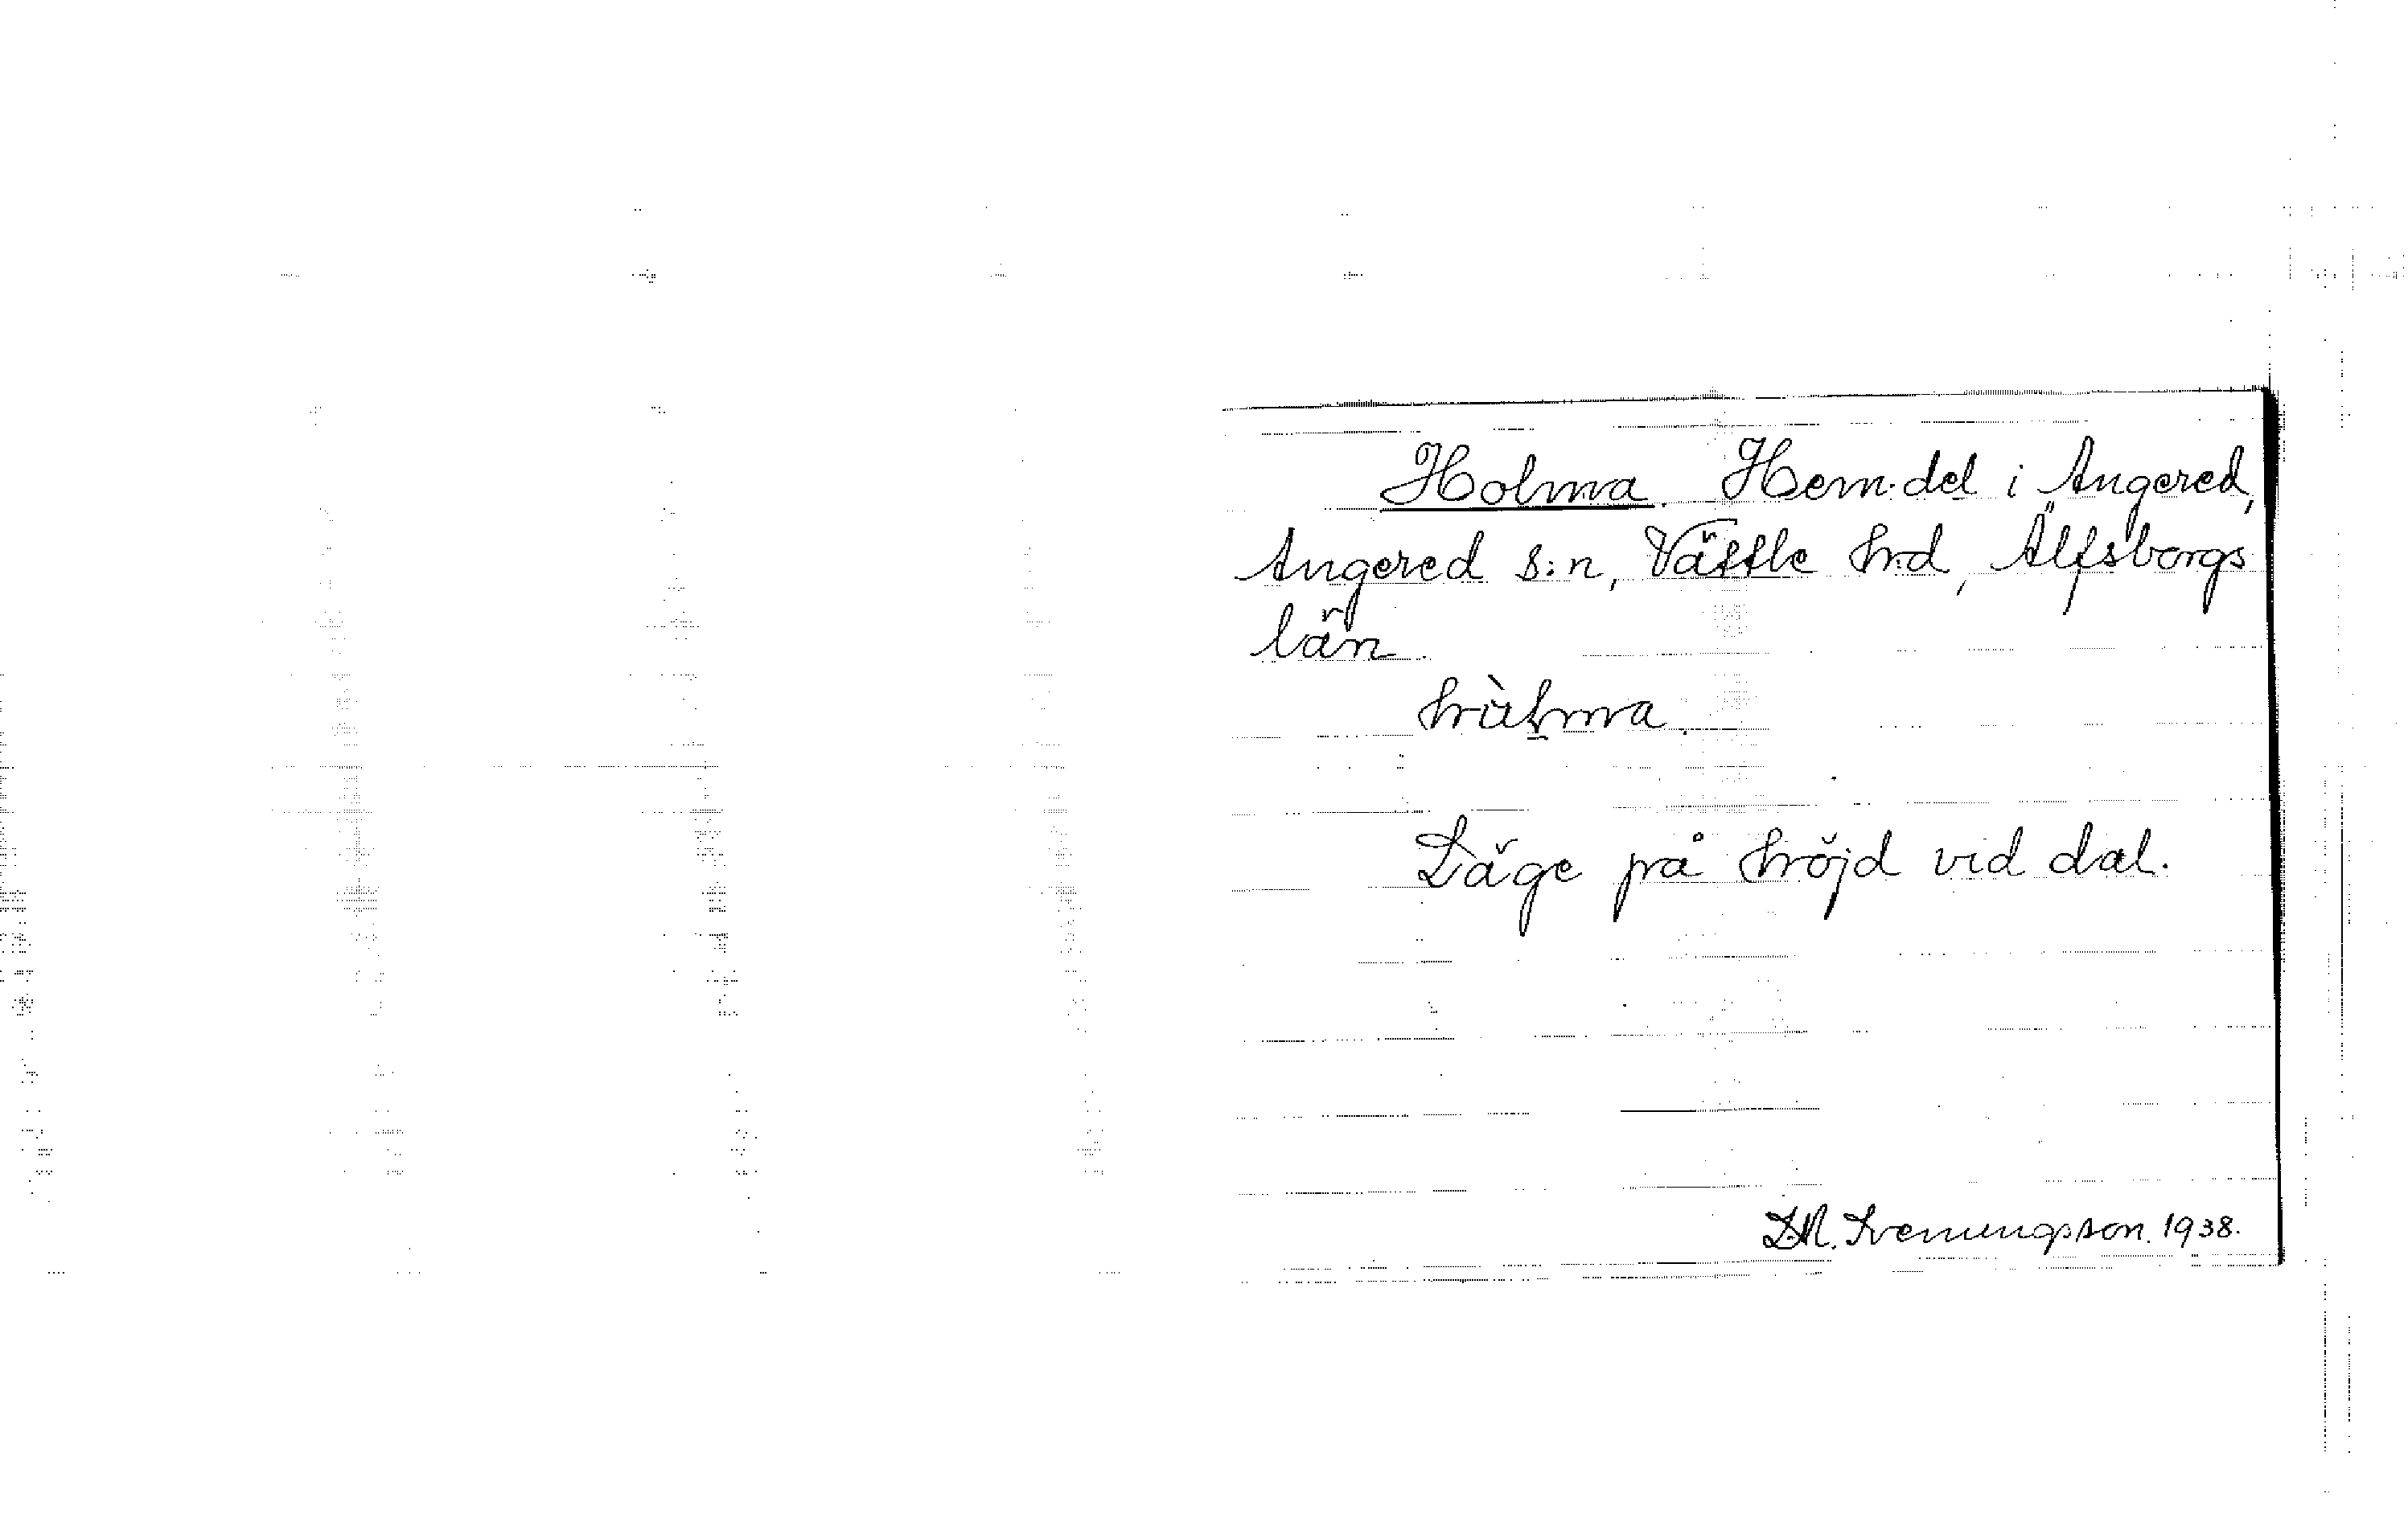 Holma. Hem.del i Angered,
Angered s:n, Vättle hd, Älfsborgs
län.
hùlma.
Läge på höjd vid dal.
1938.